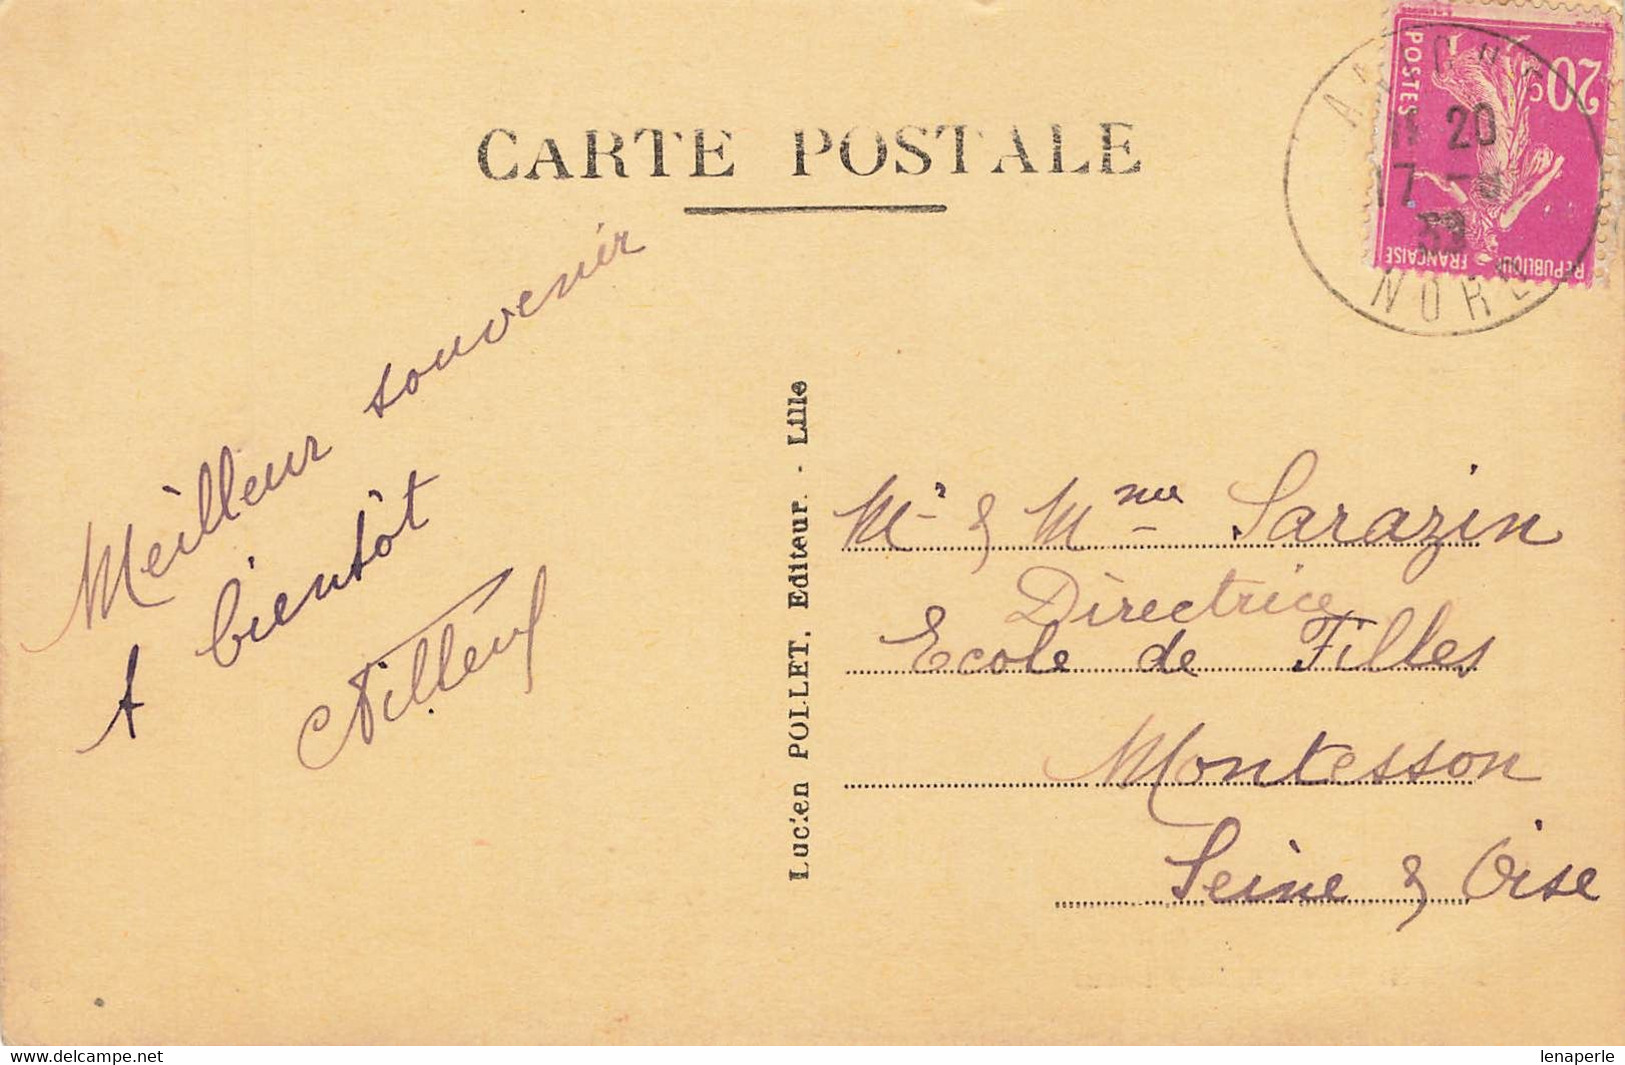 CARTE POSTALE
20c
POSTES
RÉPUBLIQUE FRANÇAISE
20
17 -
39
NORD
Meilleur souvenir
A bientôt
Lucien POLLET, Editeur. - Lille
Mr & Mme Sarazin
Directrice
Ecole de Filles
Montesson
Seine & Oise
Delcampe.net
lenaperle